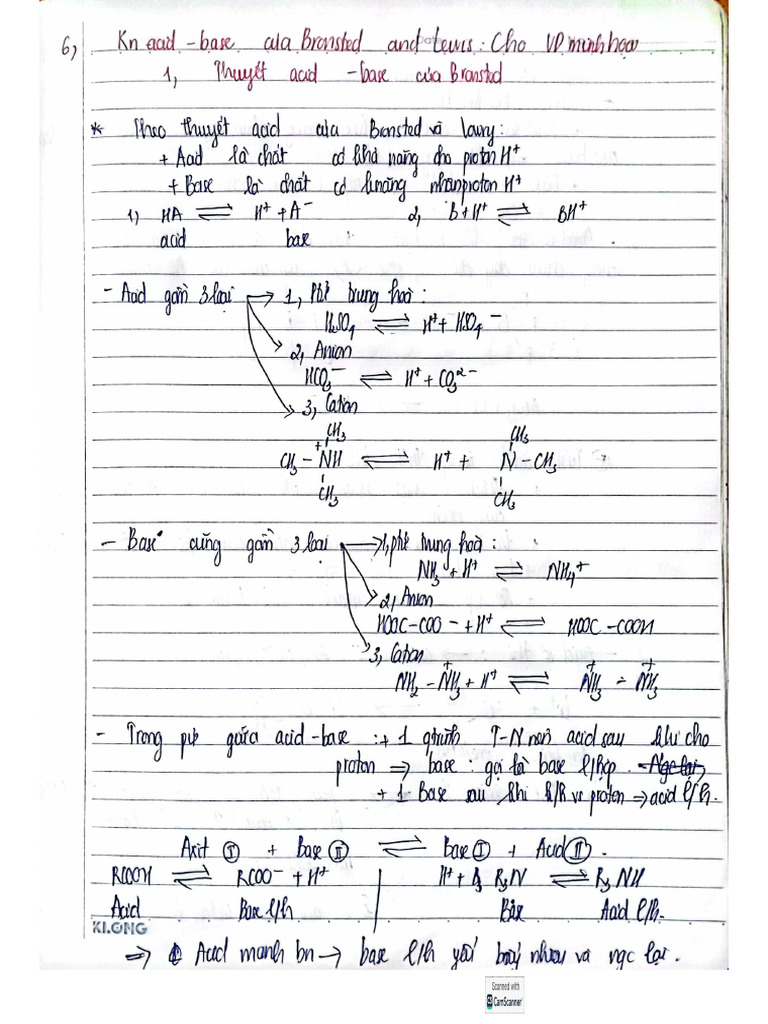 6, Kn acid - base của Bronsted and Lewis : Cho VD minh hoạ
1, Thuyết acid - base của Bronsted
* Theo thuyết acid của Bronsted và Lawry :
+ Acid là chất có khả năng cho proton H⁺
+ Base là chất có k.năng nhận proton H⁺
1) HA ⇌ H⁺ + A⁻ 2, B + H⁺ ⇌ BH⁺
acid base
- Acid gồm 3 loại → 1, Phtử trung hoà :
H₂SO₄ ⇌ H⁺ + HSO₄⁻
2, Anion
HCO₃⁻ ⇌ H⁺ + CO₃²⁻
3, Cation
CH₃ CH₃
CH₃ - N⁺H ⇌ H⁺ + N - CH₃
CH₃ CH₃
- Base cũng gồm 3 loại → 1, phtử trung hoà :
NH₃ + H⁺ ⇌ NH₄⁺
2, Anion
HOOC-COO⁻ + H⁺ ⇌ HOOC-COOH
3, Cation
NH₂ - N⁺H₃ + H⁺ ⇌ N⁺H₃ - N⁺H₃
- Trong pứ giữa acid-base : + 1 qtrình T-N acid sau khi cho
proton ⇒ base : gọi là base l/hợp. Ngc lại,
+ 1 Base sau khi k/h vs proton ⇒ acid l/h.
Axit Ⓘ + Base Ⓘ̲Ⓘ ⇌ Base Ⓘ + Acid Ⓘ̲Ⓘ.
RCOOH ⇌ RCOO⁻ + H⁺ H⁺ + R₃N ⇌ R₃NH
Acid Base l/h Base Acid l/h.
KLONG
⇒ Acid mạnh bn → base l/h yếu bấy nhiêu và ngc lại.
Scanned with
CS CamScanner